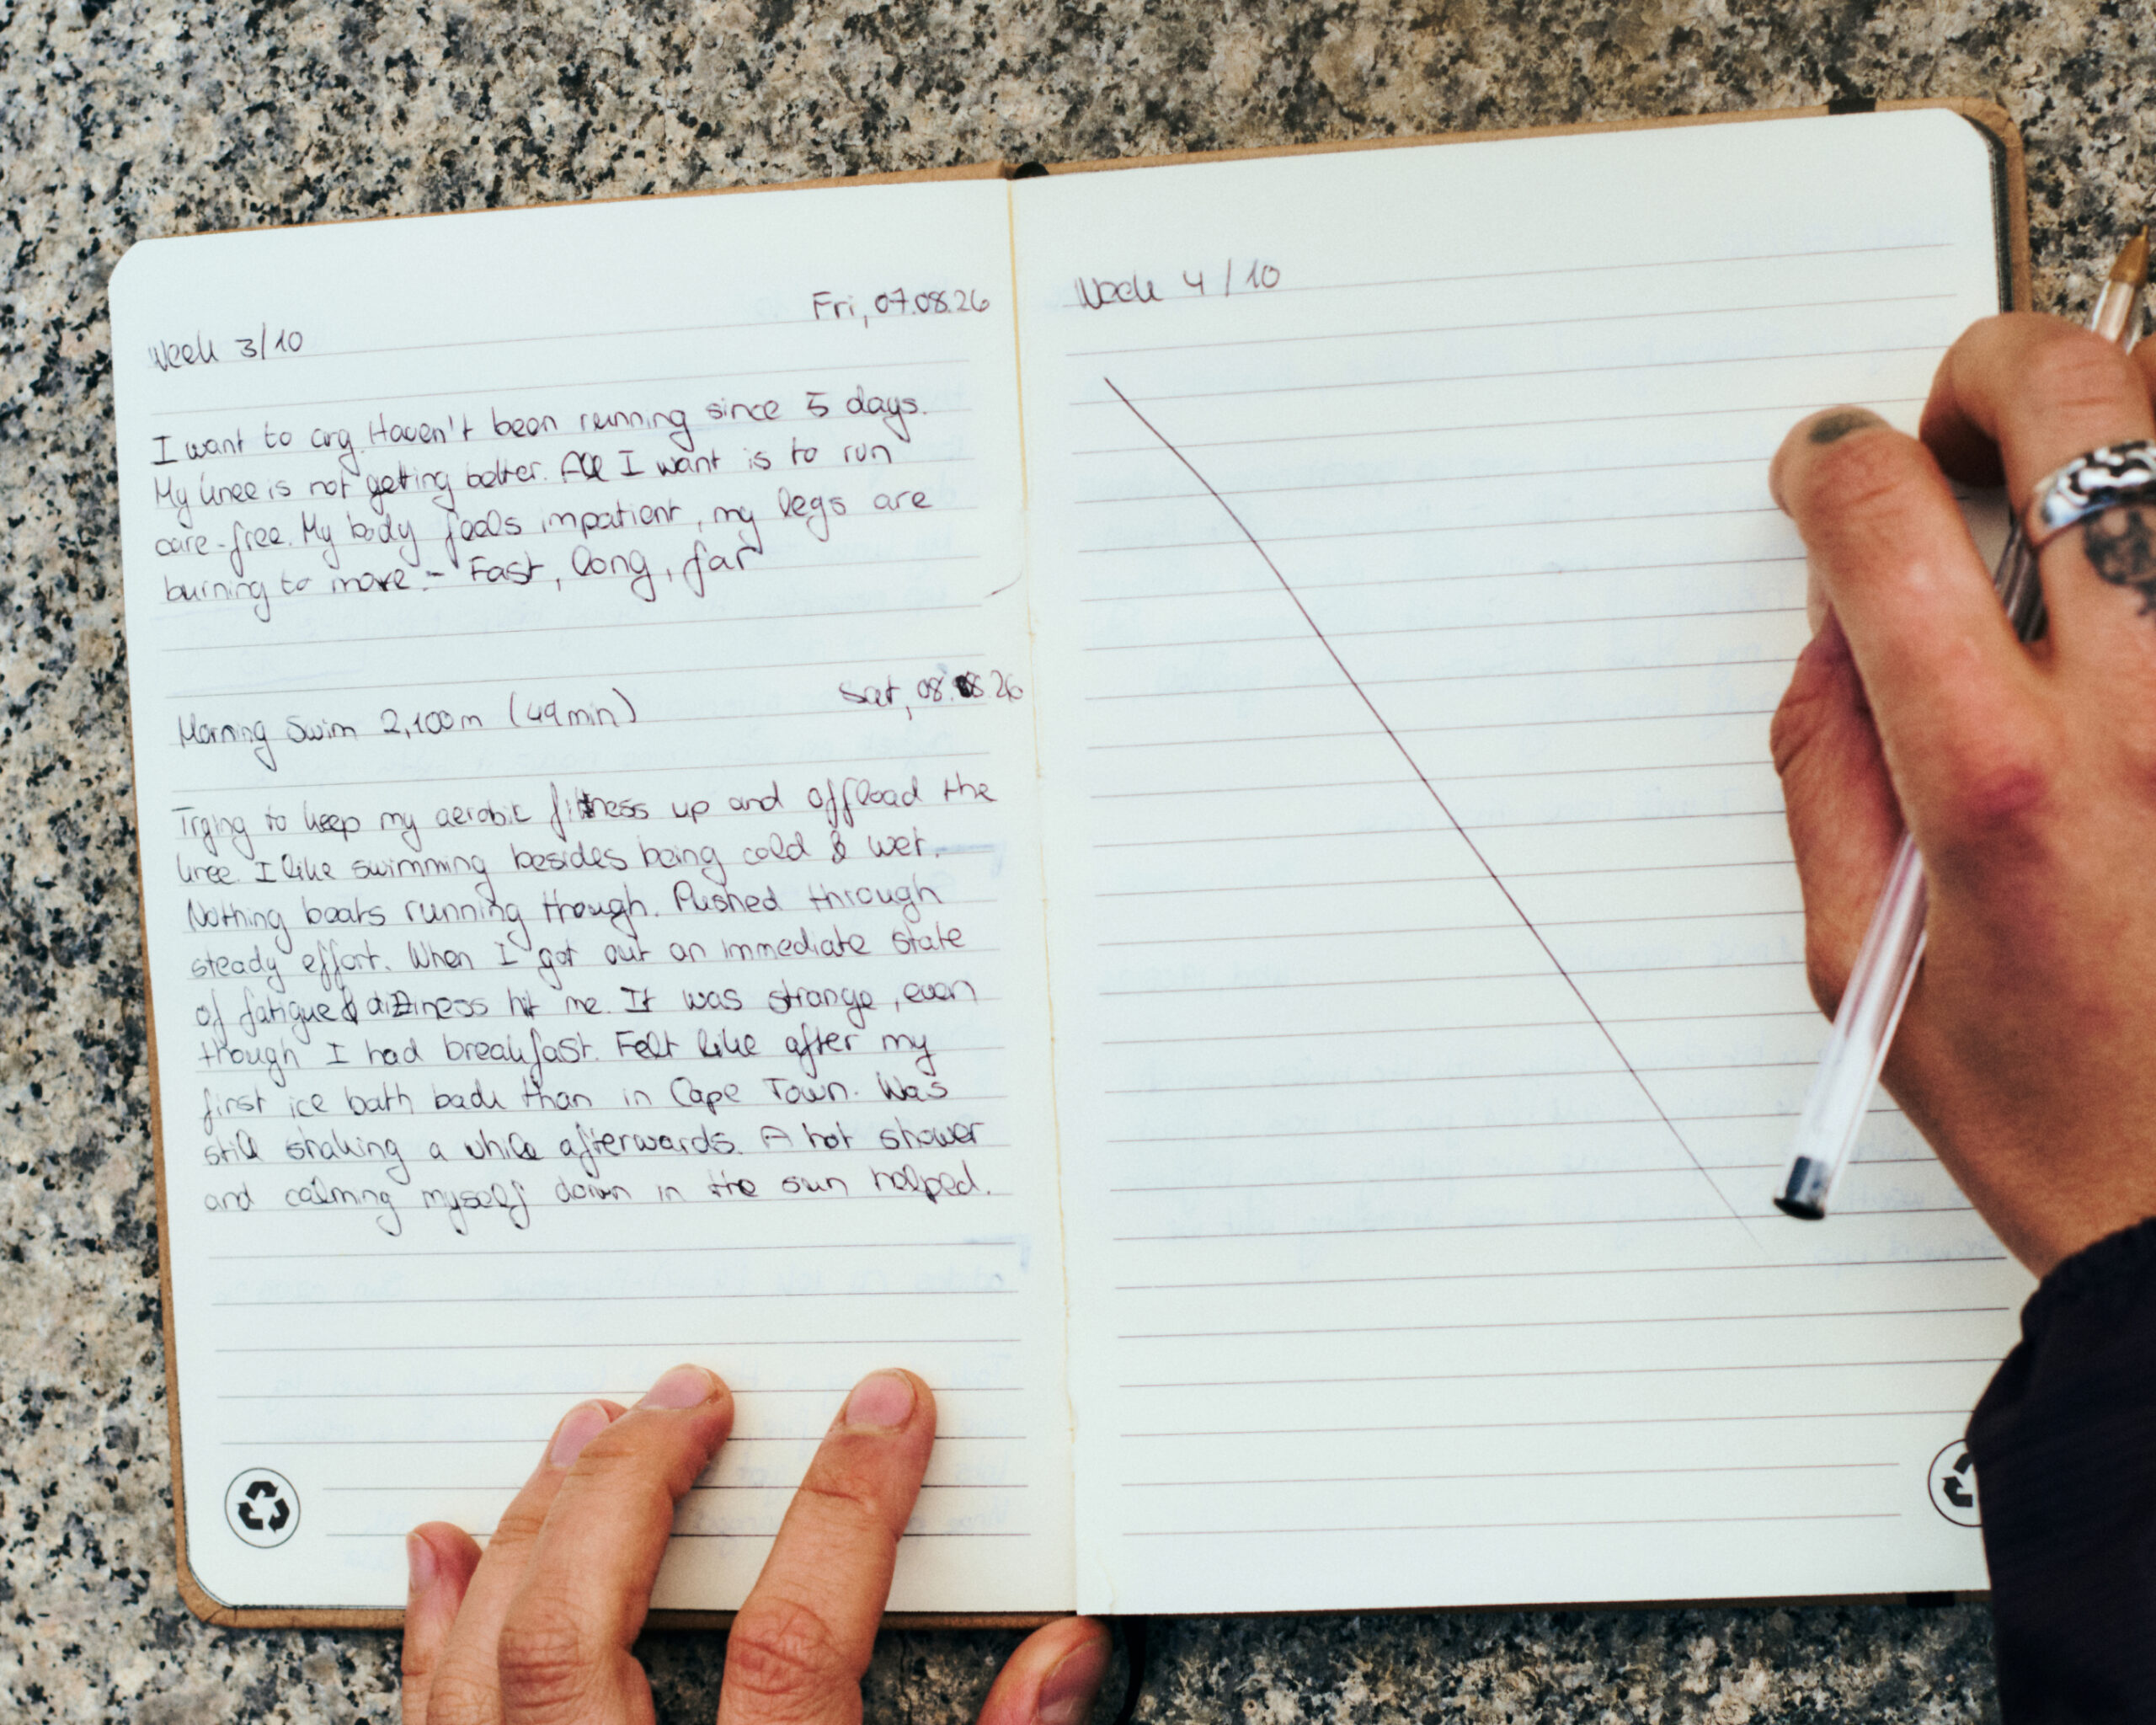 Fri, 07.08.26
Week 3/10
I want to cry. Haven't been running since 5 days.
My knee is not getting better. All I want is to run
care-free. My body feels impatient, my legs are
burning to move - Fast, long, far
Sat, 08.08.26
Morning Swim 2,100m (49min)
Trying to keep my aerobic fitness up and offload the
knee. I like swimming besides being cold & wet.
Nothing beats running though. Pushed through
steady effort. When I got out an immediate state
of fatigue & dizziness hit me. It was strange, even
though I had breakfast. Felt like after my
first ice bath back than in Cape Town. Was
still shaking a while afterwards. A hot shower
and calming myself down in the sun helped.
Week 4/10